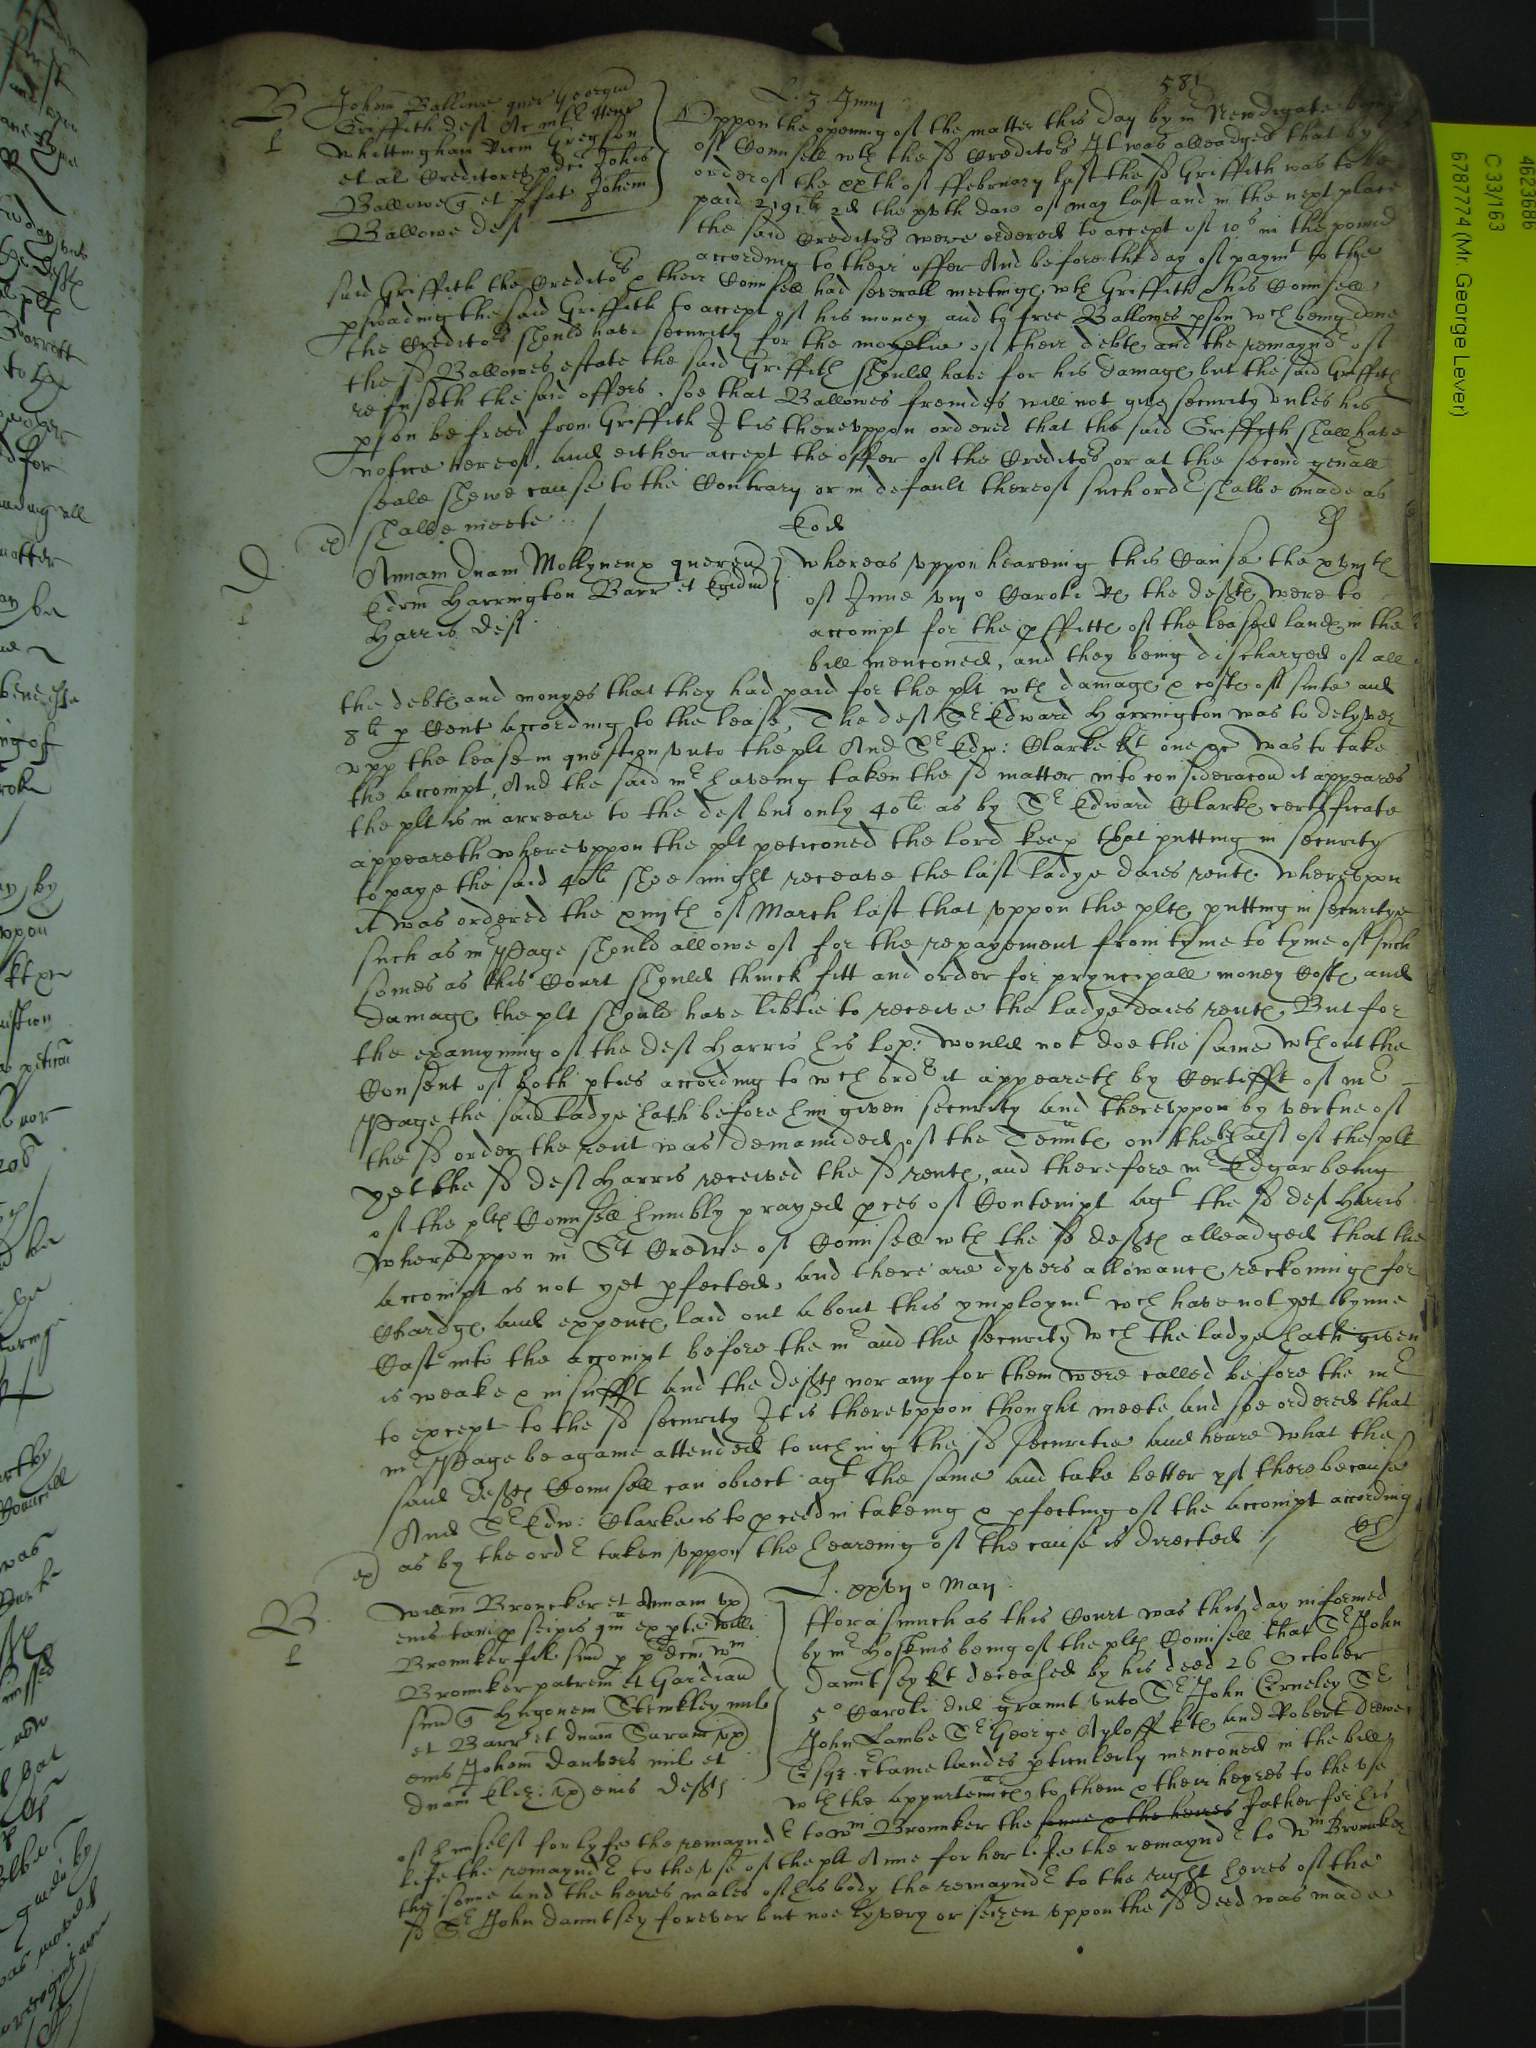 581
L. 3 Junij
B
Johem Ballowe quer Georgiu
Griffith deft Ac int Henr
Whittingham Virm Gregson
et al Creditores pdci Johis
Ballowe q et pfat Johem
Ballowe deft
Vppon the opening of the matter this day by mr Newdigate being
of Counsell wth the sd Creditors It was alleadged that by
order of the xxth of ffebruary last the sd Griffith was to be
paid 2191li 2d the xvth daie of may last and in the next place
the said Creditors were ordered to accept of 10s in the pound
according to their offer And before the day of paymt to the
said Griffith the Creditors & their Counsell had severall meetings wth Griffith & his Counsell
pswading the said Griffith to accept of his money and to free Ballowes pson wch being done
the Creditors should have security for the moyetie of their debts and the remaynder of
the sd Ballowes estate the said Griffith should have for his damages but the said Griffith
refuseth the said offers, soe that Ballowes freindes will not give security unles his
pson be freed from Griffith It is thereuppon ordered that the said Griffith shall have
notice hereof, and either accept the offer of the Creditors or at the second genall
seale shewe cause to the Contrary or in default thereof such order shalbe made as
shalbe meete
Eod
D
Annam Dnam Mollyneux queren
Edrm Harrington Barr et Egidiu
Harris deft
Whereas vppon heareing this Cause the xvijth
of June vijo Caroli Rs the defts were to
accompt for the pffitts of the leased lands in the
bill menconed, and they being discharged of all
the debts and monyes that they had paid for the plt wth damage & costs of suite and
8li p Cent according to the lease, The deft Sr Edward Harrington was to delyver
vpp the lease in question vnto the plt And Sr Edw: Clarke kt one &c was to take
the accompt, And the said mr haveing taken the sd matter into consideracon it appeares
the plt is in arreare to the deft but only 40li as by Sr Edward Clarks certificate
appeareth whereuppon the plt peticoned the lord keep that putting in security
to paye the said 40li shee might receave the last ladye daies rents wherevpon
it was ordered the xiiijth of March last that vppon the plts putting in securitye
such as mr Page should allowe of for the repayement from tyme to tyme of such
somes as this Court should thinck fitt and order for pryncipall money Costs and
damage the plt should have libtie to receive the ladye daies rents, But for
the examyning of the deft Harris his lop: would not doe the same wthout the
Consent of both pties according to wch order it appeareth by Certifft of mr
Page the said ladye hath before him given security and thereuppon by vertue of
the sd order the rent was demaunded of the Tennts on the behalf of the plt
yet the sd deft Harris received the sd rents, and therefore mr Edgar being
of the plts Counsell humbly prayed pces of Contempt agt the sd deft Harris
whereuppon mr St Crewe of Counsell wth the sd defts alleadged that the
accompt is not yet pfected, and there are dyvers allowancs reckonings for
Chardgs and expencs laid out about this ymploymt wch have not yet bynne
Cast into the accompt before the mr and the security wch the ladye hath given
is weake & insufft and the defts nor any for them were called before the mr
to except to the sd security It is thereuppon thought meete and soe ordered that
mr Page be againe attended touching the sd securitie and heare what the
said defts Counsell can obiect agt the same and take better yf there be cause
And Sr Edw: Clarke is to pceed in takeing & pfecting of the accompt according
as by the order taken vppon the heareing of the cause is directed
L. xxvijo May
B
Willm Brouncker et Annam vx
eius tam p seipis qm ex pte Willi
Brounker fil sui p pdcm Wm
Brounker patrem et Gardian
suu q Hugonem Stewkley mil
et Barr et dnam Saram vx
eius Johem Danvers mil et
dnam Eliz: vx eius defts
fforasmuch as this Court was this day informed
by mr Hoskins being of the plts Counsell that Sr John
Dauntsey kt deceased by his deed 26 October
5o Caroli did graunt vnto Sr John Erneley Sr
John Lambe Sr George Ayloff kts and Robert Drewe
Esqr ctaine landes pticulerly menconed in the bill
wth the appurtenncs to them & their heyres to the vse
of himself for lyfe the remaynder to Wm Brounker the sonne & the heires father for his
life the remaynder to the vse of the plt Anne for her life the remaynder to Wm Brouncker
the sonne and the heires males of his body the remaynder to the right heires of the
sd Sr John Dauntsey forever but noe lyvery or seizen vppon the sd deed was made
4623686
C 33/163
6787774 (Mr. George Lever)